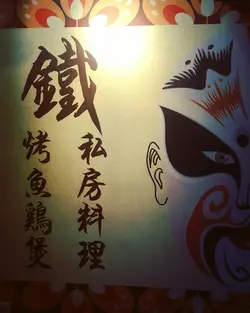 鐵
私房料理
烤魚鷄煲